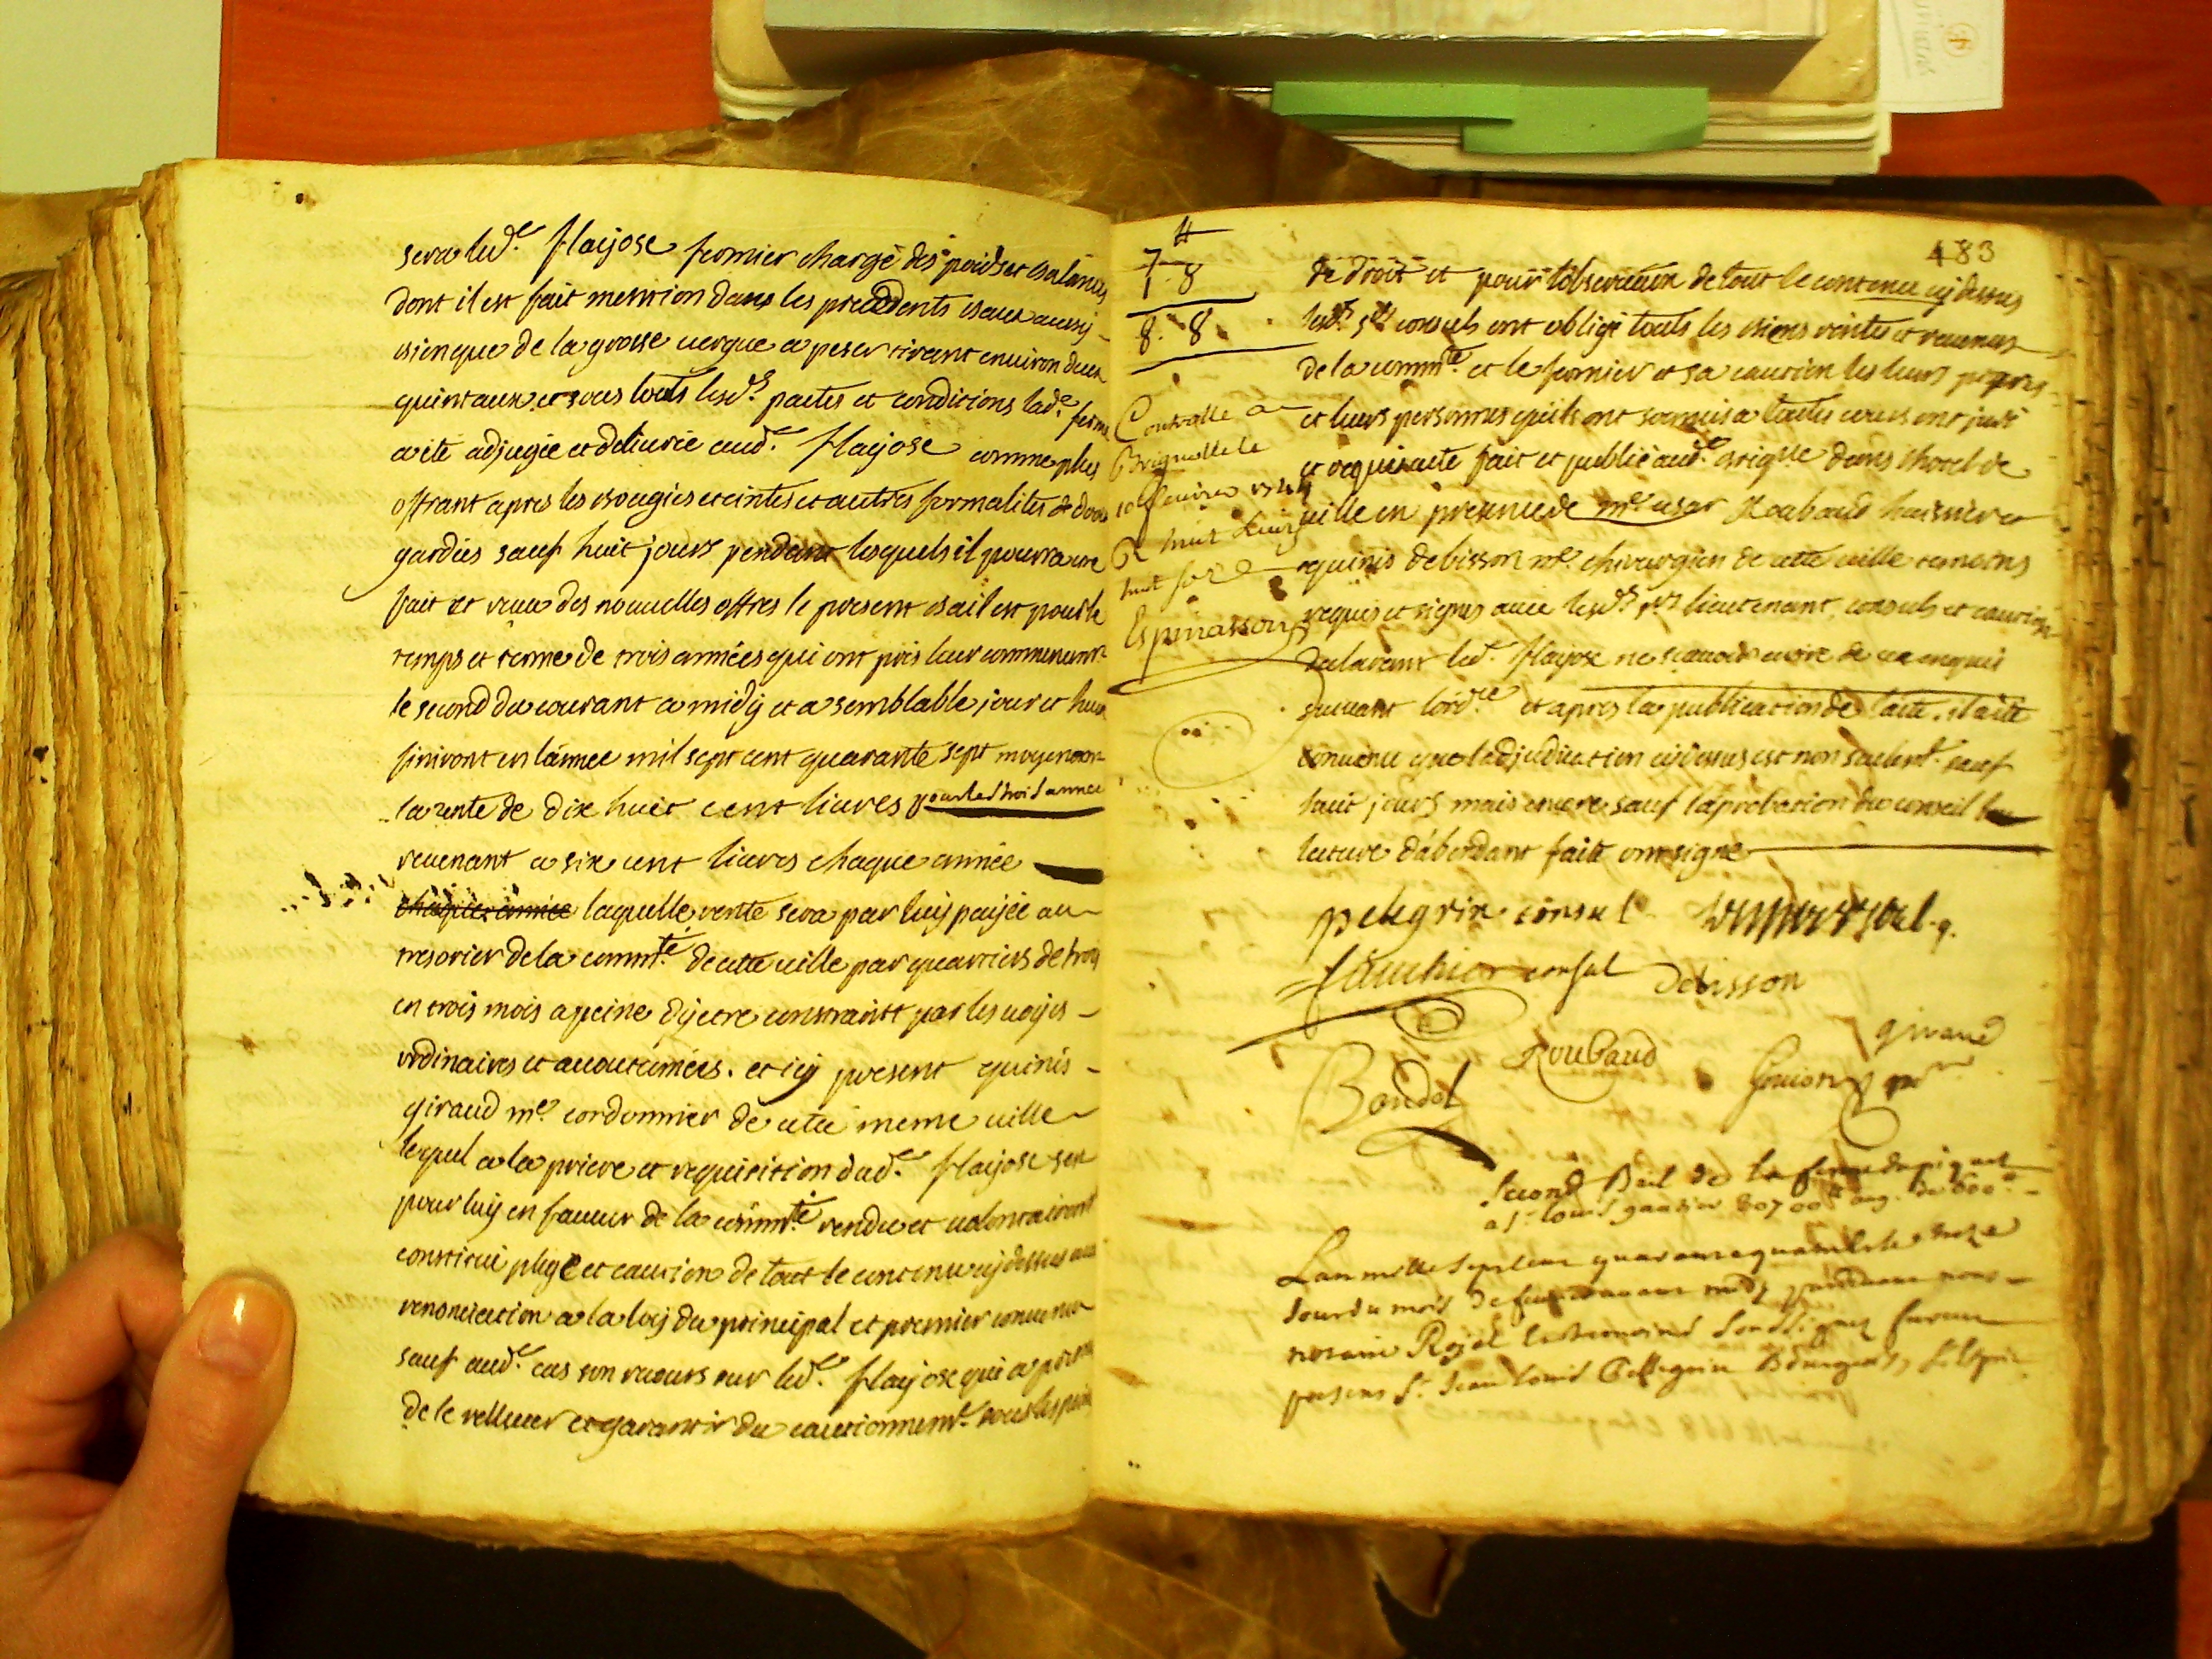 sera led.e flayose fermier chargé des poids et balances
dont il est fait mention dans les precedents baux aussy
bien que de la grosse vergue a peser tirant environ deux
quintaux et sous touts lesd.s pactes et conditions lad.e ferme
a eté adjugée et delivrée aud.e flayose comme plus
offrant apres les bougies eteintes et autres formalités
gardées sauf huit jours pendant lesquels il pourra etre
fait et receu des nouvelles offres le present bail est pour le
temps et terme de trois années qui ont pris leur commencem.t
le second du courant a midy et a semblable jour et heure
finiront en lannee mil sept cent quarante sept moyenant
la rente de dix huit cent livres pour les trois annees
revenant a six cent livres chaque année
chaque année laquelle rente sera par luy payée au
tresorier de la comm.té de cette ville par quartiers de trois
en trois mois a peine dy etre constraint par les voyes
ordinaires et accoutumées. et icy present quinis
giraud m.e cordonnier de cette meme ville
lequel a la priere et requisition dud.e flayose sest
pour luy en faveur de la comm.té rendu et volontairement
constitué plege et caution de tout le contenu cy dessus avec
renonciation a la loy du principal et premier convenu
sauf aud.e cas son recours sur led.e flayose qui a promis
de le rellever et garantir du cautionnem.t sous les peines
483
7 8
1. 8
8. 8
Controllé a
Brignolle le
huit sols
Espinasson
de droit et pour lobservation de tout le contenu cy dessus
lesd.s s.rs consuls ont obligé touts les biens rentes et revenus
de la comm.té et le fermier et sa caution les leurs propres
et leurs personnes quils ont soumis a toutes cours
et requis acte fait et publié aud.e brig.lle dans lhotel de
ville en presence de m.e cesar Roubaud huissier et
quinis debisson m.e chirurgien de cette ville temoins
requis et signés avec lesd.s s.rs lieutenant, consuls et caution
declarant led.e flayose ne scavoir ecrire de ce enquis
suivant lord.ce et apres la publication de lacte, il a eté
convenu que ladjudication cy dessus est non seulem.t sauf
huit jours mais encore sauf laprobation du conseil
lecture dabordant faite ont signé
pelegrin consul
fauchier consul debisson
giraud
Roubaud
Baudet
Second Bail de la ferme du piquet
a s.r louis
Lan mille sept cens quarante quatre et le
Jour du mois de avant midy pardevant nous
notaire Royal les temoins soussignez furent
presens S.r Jean louis Pellegrin Bourgeois,